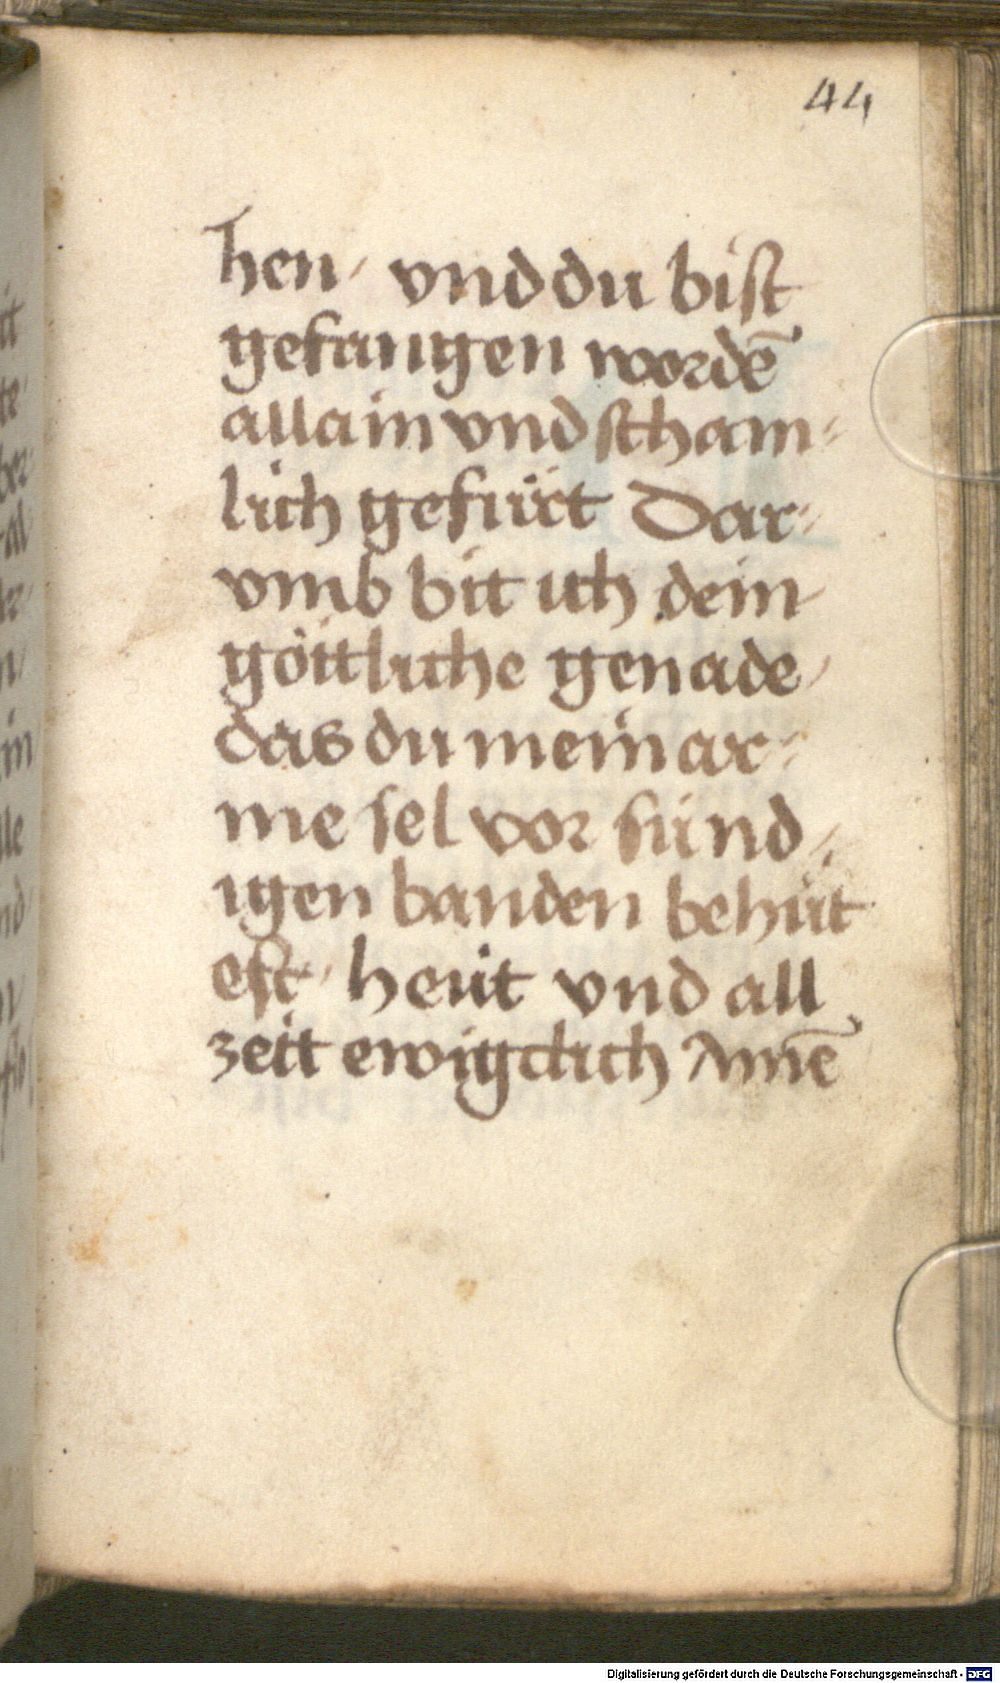 44
hen / vnd du bist
gefangen wordē
allain vnd scham⸗
lich gefürt Dar⸗
vmb bit ich dein
göttliche genade /
das du mein ar⸗
me sel vor sünd⸗
igen banden behüt
est / heüt vnd all
zeit ewigclich Amē
Digitalisierung gefördert durch die Deutsche Forschungsgemeinschaft - DFG